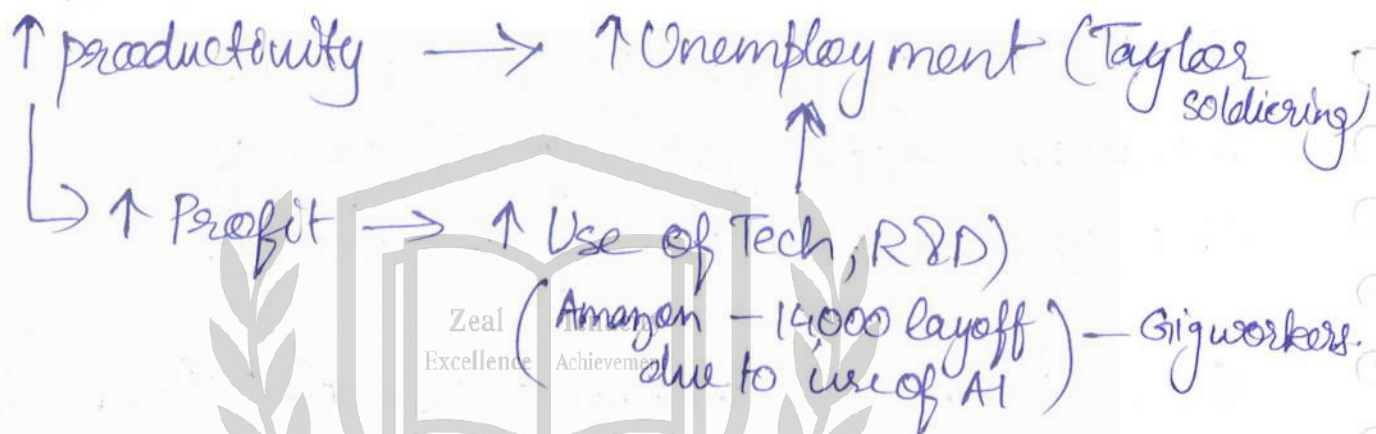 ↑ productivity → ↑ Unemployment (Taylor
soldiering)
↑ Profit → ↑ Use of Tech, R&D)
(Amazon – 14,000 layoff
due to use of AI) – Gigworkers.
Zeal
Excellence Achievement